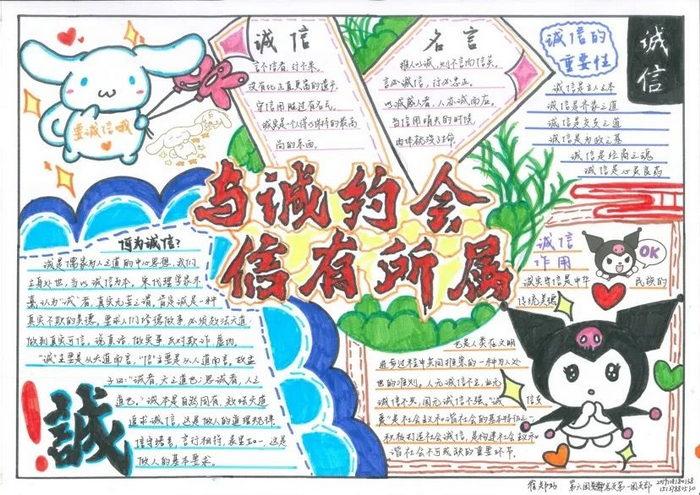 诚信
言不信者,行不果。
没有比正直更富的遗产
守信用胜过有名气。
诚实是个人得以保持的最高
尚的东西。
名言
推人以诚,则不言而信矣。
言必诚信,行必忠正。
以诚感人者,人亦诚而应。
当信用消失的时候,
肉体就没了生命
诚信的
重要性
诚信
诚信是立人之本
诚信是齐家之道
诚信是交友之道
诚信是为政之基
诚信是经商之魂
诚信是心灵良药
要诚信哦
与诚约会
信有所属
何为诚信?
诚是儒家为人之道的中心思想,我们
立身处世,当以诚信为本。宋代理学家朱
熹认为"诚"者,真实无妄之谓,肯定诚是一种
真实不欺的美德。要求人们修德做事必须效法天道,
做到真实可信,说真话,做实事,反对欺诈虚伪。
"诚"主要是从天道而言,"信"主要是从人道而言,故孟
子曰:"诚者,天之道也;思诚者,人之
道也。"诚本是自然固有,效法天道
追求诚信,这是做人的道理规律。
信守诺言,言行相符,表里如一,这是
做人的基本要求。
誠
诚信
作用
OK
诚实守信是中华
民族的
传统美德
也是人类在文明
进步过程中共同推崇的一种为人处
世的准则。人无诚信不立,业无
诚信不兴,国无诚信不强。诚
信友
爱是社会主义和谐社会的基本特征之一
积极推进社会诚信,是构建社会主义和
谐社会不可或缺的重要环节。